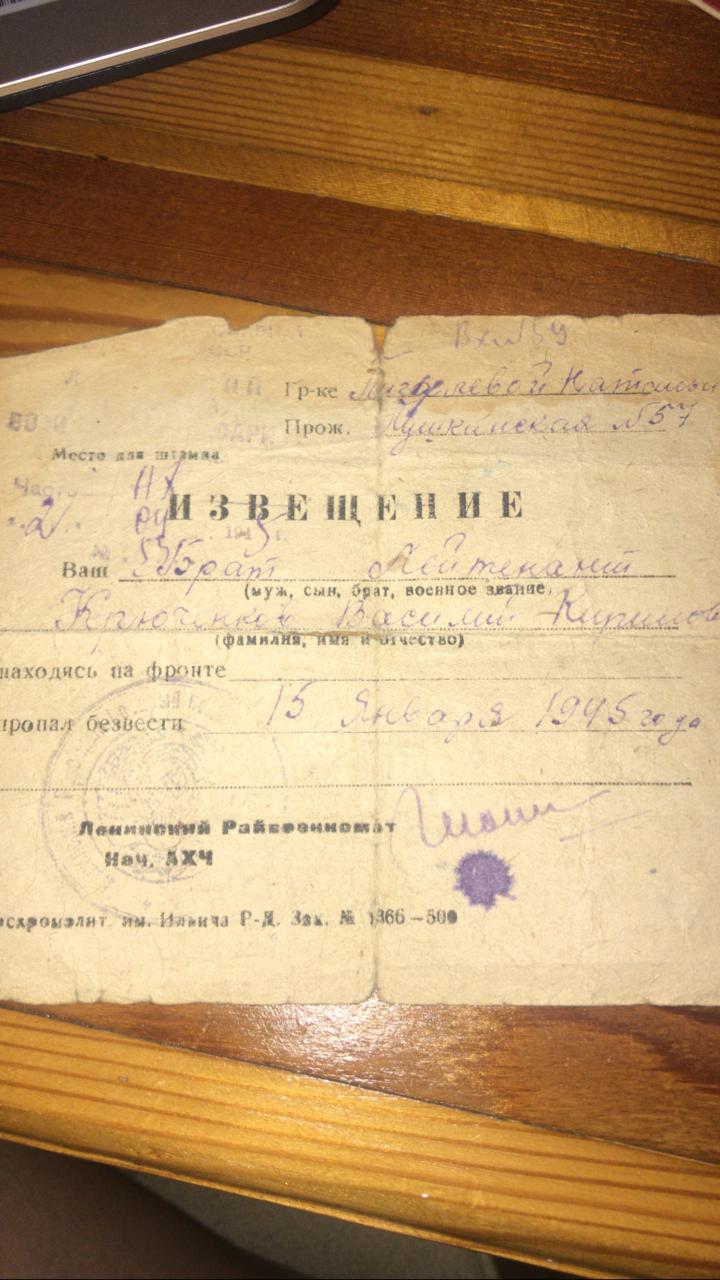 Вх №59
Гр-ке Натальи
Прож. Пушкинская №57
Место для штампа
Часть
ИЗВЕЩЕНИЕ
Ваш Брат Лейтенант
(муж, сын, брат, военное звание,
Крюченков Василий Кирилов
(фамилия, имя и отчество)
находясь на фронте
пропал безвести 15 Января 1945 года
Ленинский Райвоенкомат
Нач. АХЧ
осхромолит им. Ильича Р-Д. Зак. № 1366—500